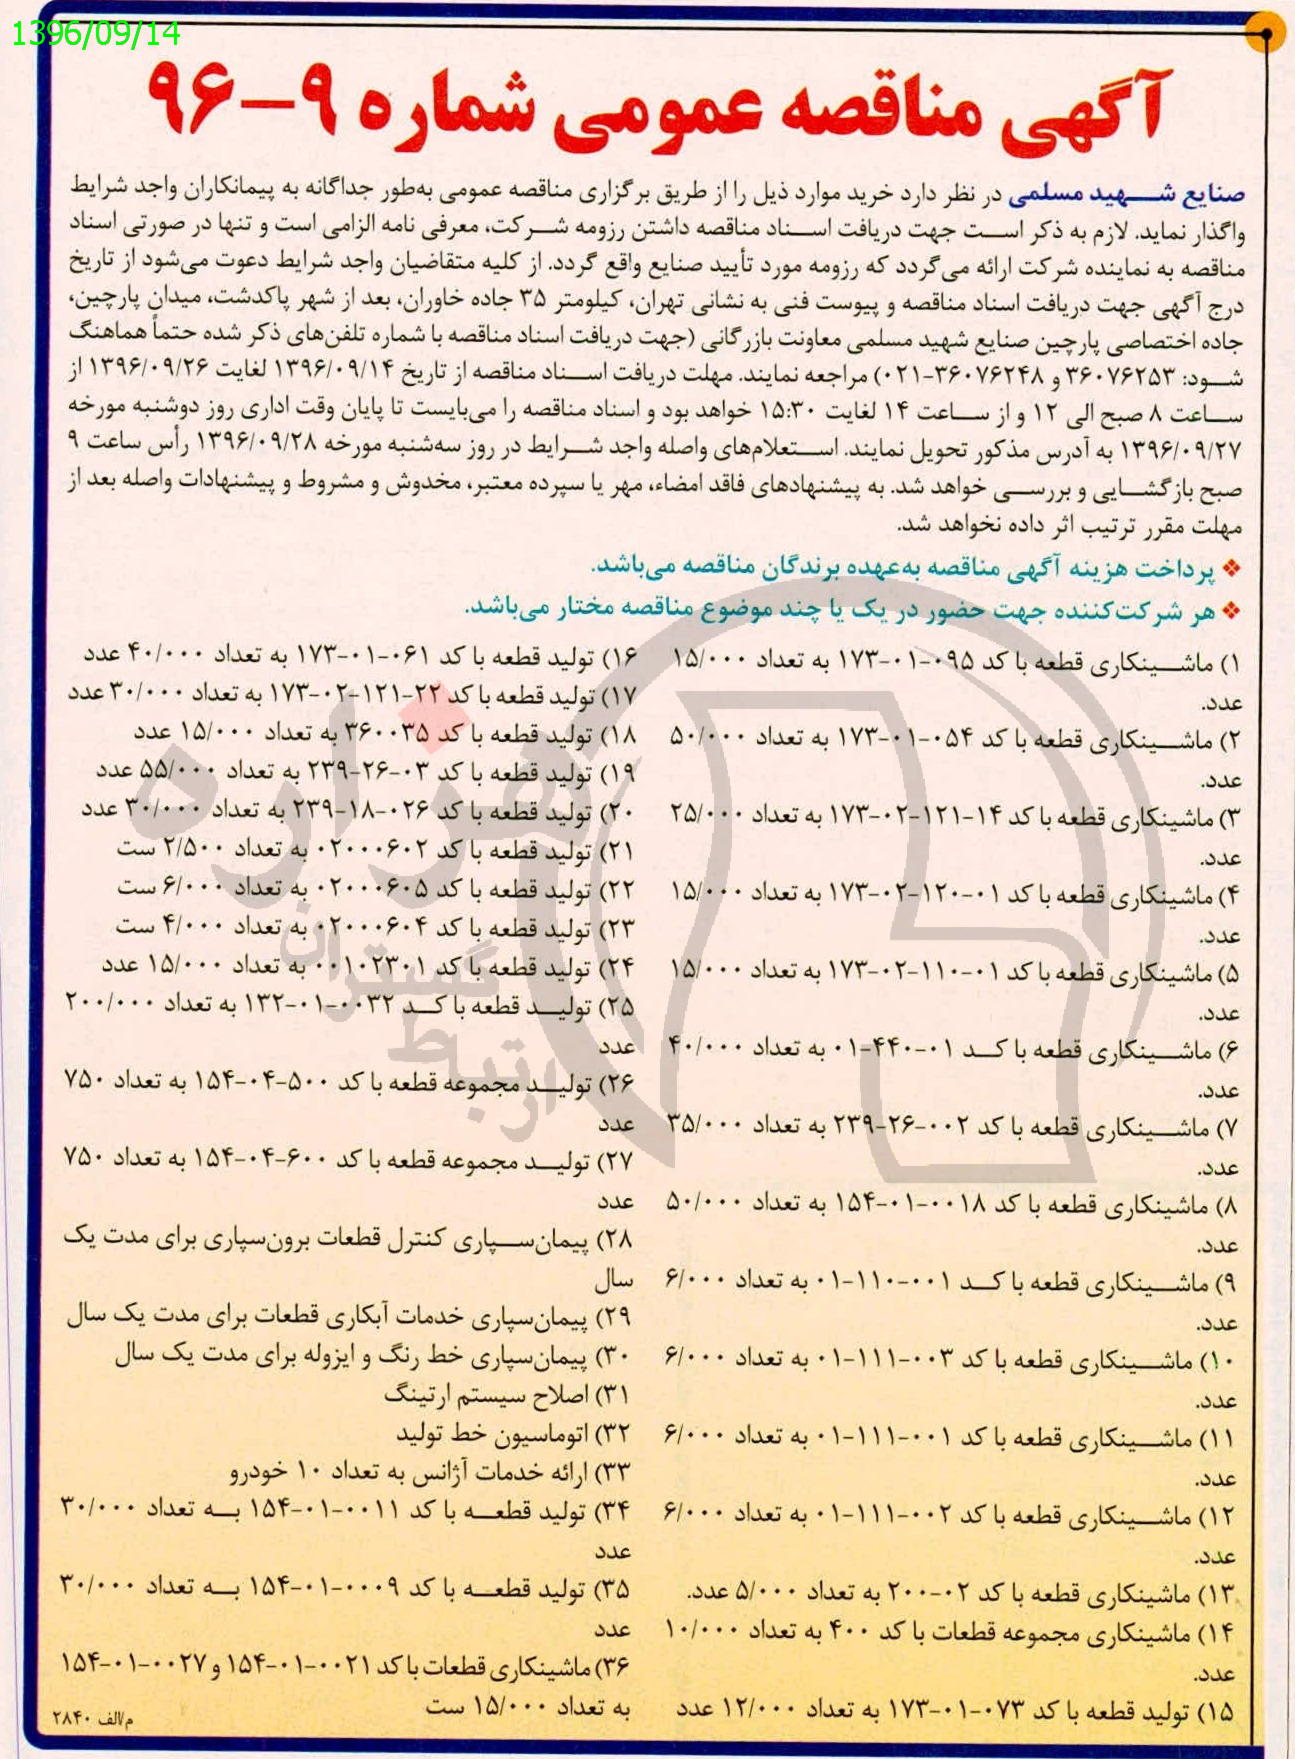 1396/09/14
آگهی مناقصه عمومی شماره ۹-۹۶
صنایع شهید مسلمی در نظر دارد خرید موارد ذیل را از طریق برگزاری مناقصه عمومی به‌طور جداگانه به پیمانکاران واجد شرایط
واگذار نماید. لازم به ذکر است جهت دریافت اسناد مناقصه داشتن رزومه شرکت، معرفی نامه الزامی است و تنها در صورتی اسناد
مناقصه به نماینده شرکت ارائه می‌گردد که رزومه مورد تأیید صنایع واقع گردد. از کلیه متقاضیان واجد شرایط دعوت می‌شود از تاریخ
درج آگهی جهت دریافت اسناد مناقصه و پیوست فنی به نشانی تهران، کیلومتر ۳۵ جاده خاوران، بعد از شهر پاکدشت، میدان پارچین،
جاده اختصاصی پارچین صنایع شهید مسلمی معاونت بازرگانی (جهت دریافت اسناد مناقصه با شماره تلفن‌های ذکر شده حتماً هماهنگ
شود: ۳۶۰۷۶۲۵۳ و ۳۶۰۷۶۲۴۸-۰۲۱) مراجعه نمایند. مهلت دریافت اسناد مناقصه از تاریخ ۱۳۹۶/۰۹/۱۴ لغایت ۱۳۹۶/۰۹/۲۶ از
ساعت ۸ صبح الی ۱۲ و از ساعت ۱۴ لغایت ۱۵:۳۰ خواهد بود و اسناد مناقصه را می‌بایست تا پایان وقت اداری روز دوشنبه مورخه
۱۳۹۶/۰۹/۲۷ به آدرس مذکور تحویل نمایند. استعلام‌های واصله واجد شرایط در روز سه‌شنبه مورخه ۱۳۹۶/۰۹/۲۸ رأس ساعت ۹
صبح بازگشایی و بررسی خواهد شد. به پیشنهادهای فاقد امضاء، مهر یا سپرده معتبر، مخدوش و مشروط و پیشنهادات واصله بعد از
مهلت مقرر ترتیب اثر داده نخواهد شد.
❖ پرداخت هزینه آگهی مناقصه به‌عهده برندگان مناقصه می‌باشد.
❖ هر شرکت‌کننده جهت حضور در یک یا چند موضوع مناقصه مختار می‌باشد.
۱) ماشینکاری قطعه با کد ۰۹۵-۰۱-۱۷۳ به تعداد ۱۵/۰۰۰
عدد.
۲) ماشینکاری قطعه با کد ۰۵۴-۰۱-۱۷۳ به تعداد ۵۰/۰۰۰
عدد.
۳) ماشینکاری قطعه با کد ۱۴-۱۲۱-۰۲-۱۷۳ به تعداد ۲۵/۰۰۰
عدد.
۴) ماشینکاری قطعه با کد ۰۱-۱۲۰-۰۲-۱۷۳ به تعداد ۱۵/۰۰۰
عدد.
۵) ماشینکاری قطعه با کد ۰۱-۱۱۰-۰۲-۱۷۳ به تعداد ۱۵/۰۰۰
عدد.
۶) ماشینکاری قطعه با کد ۰۱-۴۴۰-۰۱ به تعداد ۴۰/۰۰۰
عدد.
۷) ماشینکاری قطعه با کد ۰۰۲-۲۶-۲۳۹ به تعداد ۳۵/۰۰۰
عدد.
۸) ماشینکاری قطعه با کد ۰۰۱۸-۰۱-۱۵۴ به تعداد ۵۰/۰۰۰
عدد.
۹) ماشینکاری قطعه با کد ۰۰۱-۱۱۰-۰۱ به تعداد ۶/۰۰۰
عدد.
۱۰) ماشینکاری قطعه با کد ۰۰۳-۱۱۱-۰۱ به تعداد ۶/۰۰۰
عدد.
۱۱) ماشینکاری قطعه با کد ۰۰۱-۱۱۱-۰۱ به تعداد ۶/۰۰۰
عدد.
۱۲) ماشینکاری قطعه با کد ۰۰۲-۱۱۱-۰۱ به تعداد ۶/۰۰۰
عدد.
۱۳) ماشینکاری قطعه با کد ۰۲-۲۰۰ به تعداد ۵/۰۰۰ عدد.
۱۴) ماشینکاری مجموعه قطعات با کد ۴۰۰ به تعداد ۱۰/۰۰۰
عدد.
۱۵) تولید قطعه با کد ۰۷۳-۰۱-۱۷۳ به تعداد ۱۲/۰۰۰ عدد
۱۶) تولید قطعه با کد ۰۶۱-۰۱-۱۷۳ به تعداد ۴۰/۰۰۰ عدد
۱۷) تولید قطعه با کد ۲۲-۱۲۱-۰۲-۱۷۳ به تعداد ۳۰/۰۰۰ عدد
۱۸) تولید قطعه با کد ۳۶۰۰۳۵ به تعداد ۱۵/۰۰۰ عدد
۱۹) تولید قطعه با کد ۰۳-۲۶-۲۳۹ به تعداد ۵۵/۰۰۰ عدد
۲۰) تولید قطعه با کد ۰۲۶-۱۸-۲۳۹ به تعداد ۳۰/۰۰۰ عدد
۲۱) تولید قطعه با کد ۰۲۰۰۰۶۰۲ به تعداد ۲/۵۰۰ ست
۲۲) تولید قطعه با کد ۰۲۰۰۰۶۰۵ به تعداد ۶/۰۰۰ ست
۲۳) تولید قطعه با کد ۰۲۰۰۰۶۰۴ به تعداد ۴/۰۰۰ ست
۲۴) تولید قطعه با کد ۰۰۱۰۲۳۰۱ به تعداد ۱۵/۰۰۰ عدد
۲۵) تولید قطعه با کد ۰۰۳۲-۰۱-۱۳۲ به تعداد ۲۰۰/۰۰۰
عدد
۲۶) تولید مجموعه قطعه با کد ۵۰۰-۰۴-۱۵۴ به تعداد ۷۵۰
عدد
۲۷) تولید مجموعه قطعه با کد ۶۰۰-۰۴-۱۵۴ به تعداد ۷۵۰
عدد
۲۸) پیمان‌سپاری کنترل قطعات برون‌سپاری برای مدت یک
سال
۲۹) پیمان‌سپاری خدمات آبکاری قطعات برای مدت یک سال
۳۰) پیمان‌سپاری خط رنگ و ایزوله برای مدت یک سال
۳۱) اصلاح سیستم ارتینگ
۳۲) اتوماسیون خط تولید
۳۳) ارائه خدمات آژانس به تعداد ۱۰ خودرو
۳۴) تولید قطعه با کد ۰۰۱۱-۰۱-۱۵۴ به تعداد ۳۰/۰۰۰
عدد
۳۵) تولید قطعه با کد ۰۰۰۹-۰۱-۱۵۴ به تعداد ۳۰/۰۰۰
عدد
۳۶) ماشینکاری قطعات با کد ۰۰۲۱-۰۱-۱۵۴ و ۰۰۲۷-۰۱-۱۵۴
به تعداد ۱۵/۰۰۰ ست
م/الف ۲۸۴۰
هزاره
گستران
ارتباط